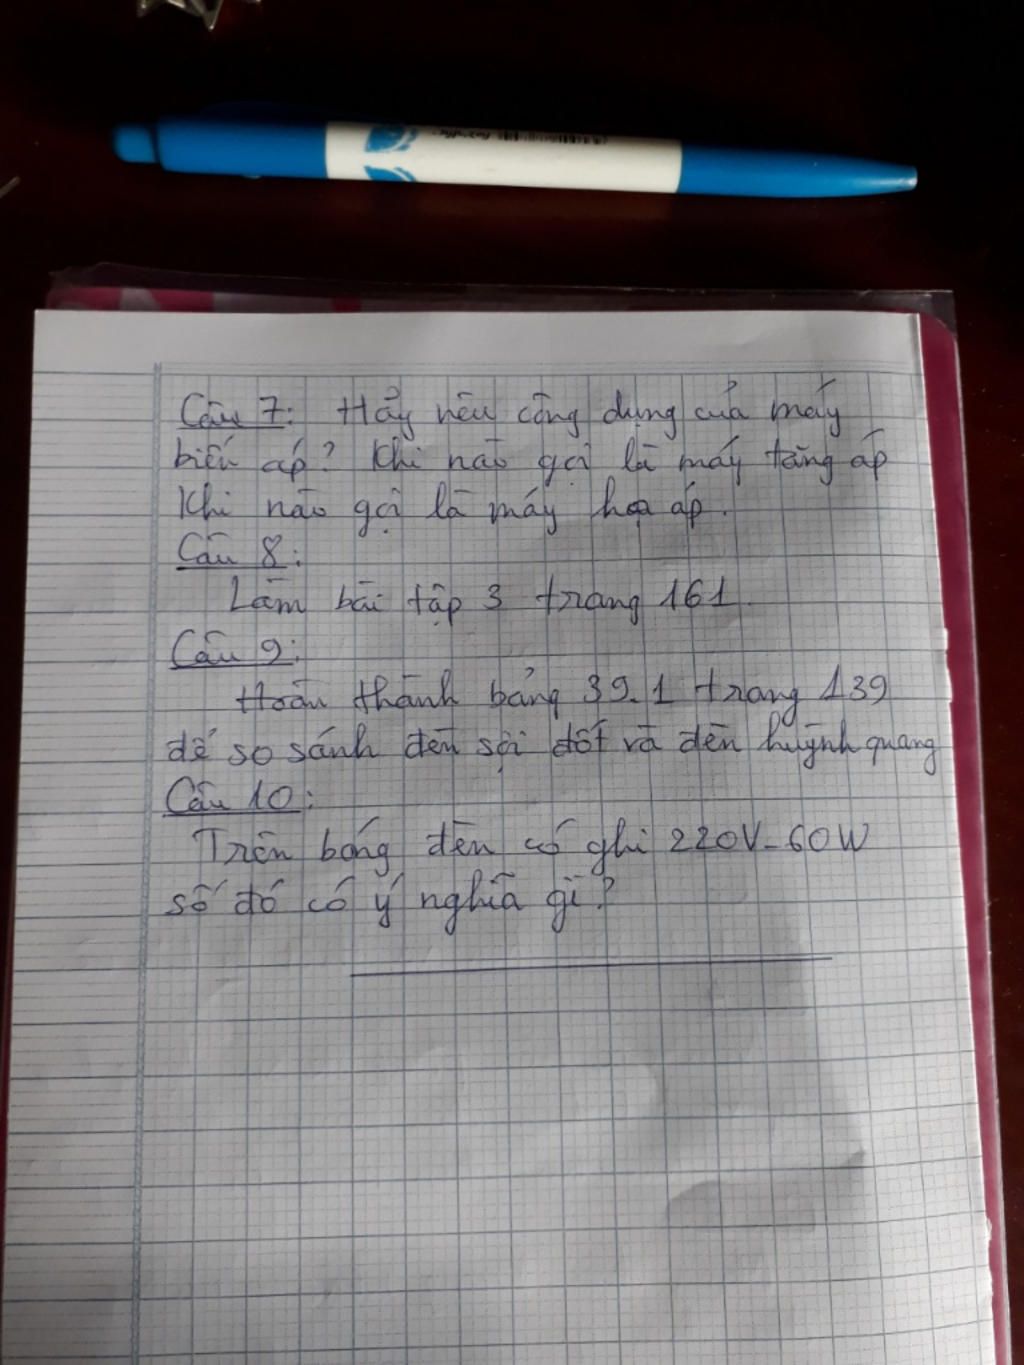 Câu 7: Hãy nêu công dụng của máy
biến áp? Khi nào gọi là máy tăng áp
Khi nào gọi là máy hạ áp.
Câu 8:
Làm bài tập 3 trang 161
Câu 9:
Hoàn thành bảng 39.1 trang 139
để so sánh đèn sợi đốt và đèn huỳnh quang
Câu 10:
Trên bóng đèn có ghi 220V-60W
số đó có ý nghĩa gì?